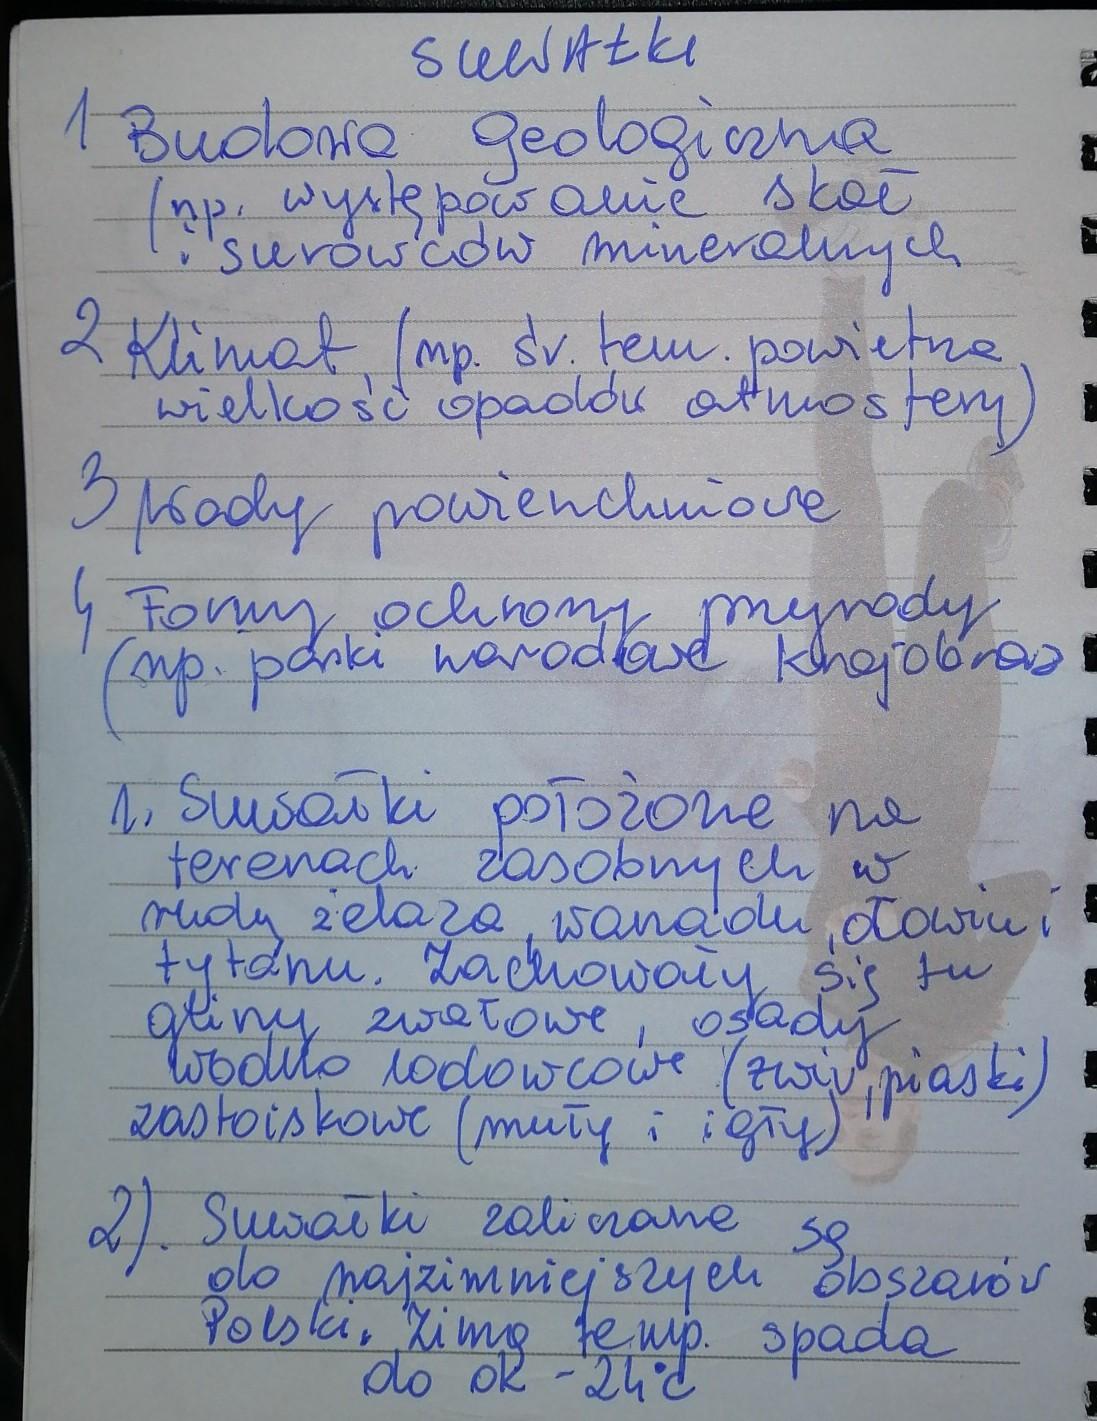 SUWAŁKI
1 Budowa geologiczna
(np. występowanie skał
i surowców mineralnych
2 Klimat (np. śr. tem. powietrza
wielkość opadów atmosfery)
3 Wody powierzchniowe
4 Formy ochrony przyrody
(np. parki narodowe krajobraz
1. Suwałki położone na
terenach zasobnych w
rudy żelaza, wanadu, ołowiu i
tytanu. Zachowały się tu
gliny zwałowe, osady
wodno lodowcowe (żwir, piaski)
zastoiskowe (muły i igły)
2). Suwałki zaliczane są
do najzimniejszych obszarów
Polski. Zimą temp. spada
do ok -24°C